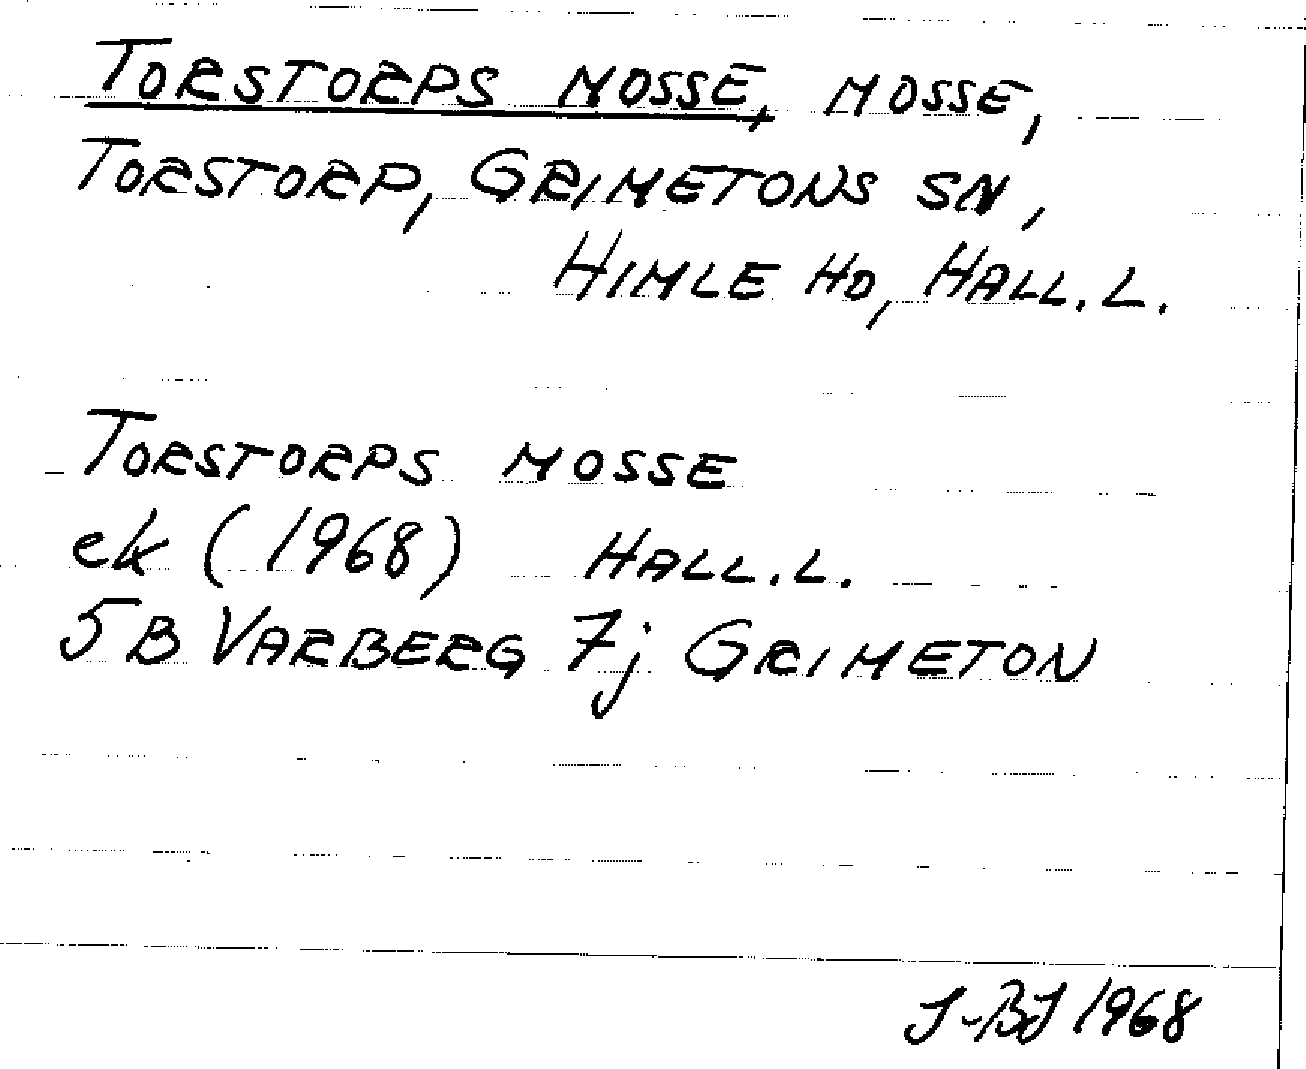 TORSTORPS MOSSE, MOSSE,
TORSTORP, GRIMETONS SN,
HIMLE HD, HALL. L.
TORSTORPS MOSSE
ek (1968) HALL. L.
5B VARBERG 7j GRIMETON
J-BJ 1968